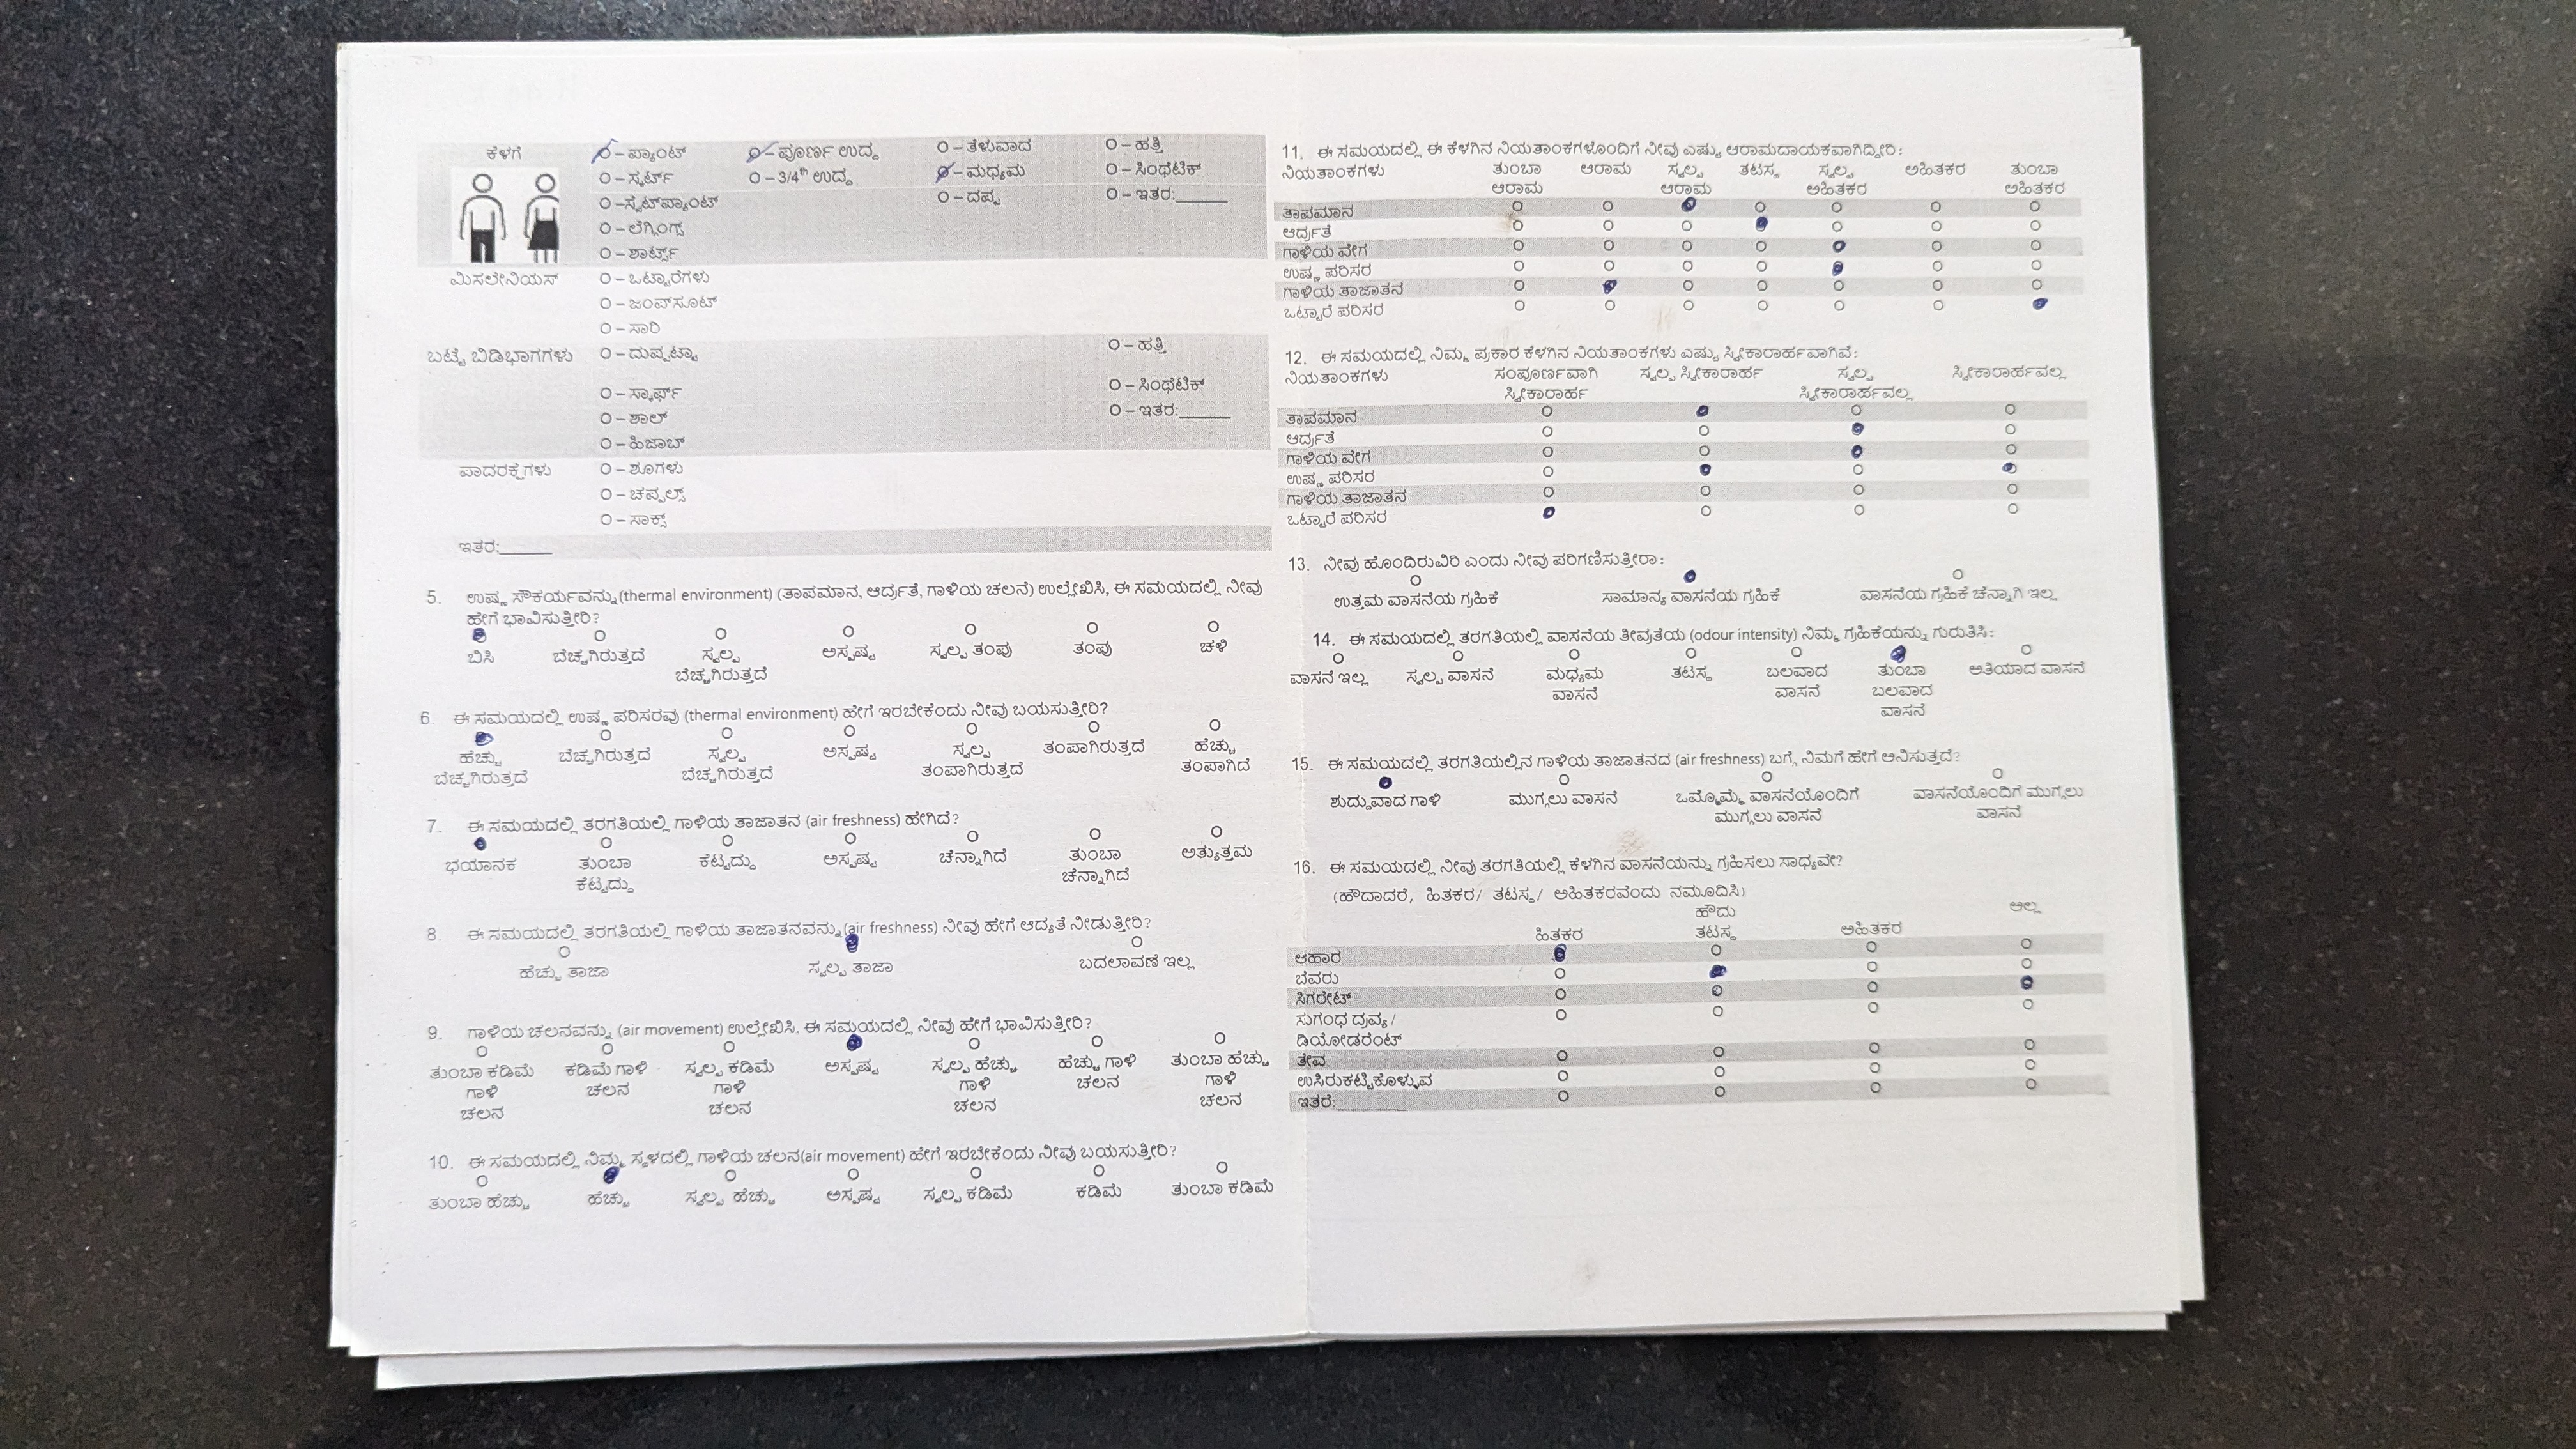 ಕೆಳಗೆ O – ಪ್ಯಾಂಟ್ O – ಪೂರ್ಣ ಉದ್ದ O – ತೆಳುವಾದ O – ಹತ್ತಿ
O – ಸ್ಕರ್ಟ್ O – 3/4th ಉದ್ದ O – ಮಧ್ಯಮ O – ಸಿಂಥೆಟಿಕ್
O –ಸ್ವೆಟ್‌ಪ್ಯಾಂಟ್ O – ದಪ್ಪ O – ಇತರ:______
O – ಲೆಗ್ಗಿಂಗ್ಸ್
O – ಶಾರ್ಟ್ಸ್
ಮಿಸಲೇನಿಯಸ್ O – ಒಟ್ಟಾರೆಗಳು
O – ಜಂಪ್‌ಸೂಟ್
O – ಸಾರಿ
ಬಟ್ಟೆ ಬಿಡಿಭಾಗಗಳು O – ದುಪ್ಪಟ್ಟಾ O – ಹತ್ತಿ
O – ಸ್ಕಾರ್ಫ್ O – ಸಿಂಥೆಟಿಕ್
O – ಶಾಲ್ O – ಇತರ:______
O – ಹಿಜಾಬ್
ಪಾದರಕ್ಷೆಗಳು O – ಶೂಗಳು
O – ಚಪ್ಪಲ್ಸ್
O – ಸಾಕ್ಸ್
ಇತರ:______
5. ಉಷ್ಣ ಸೌಕರ್ಯವನ್ನು(thermal environment) (ತಾಪಮಾನ, ಆರ್ದ್ರತೆ, ಗಾಳಿಯ ಚಲನೆ) ಉಲ್ಲೇಖಿಸಿ, ಈ ಸಮಯದಲ್ಲಿ ನೀವು
ಹೇಗೆ ಭಾವಿಸುತ್ತೀರಿ?
ಬಿಸಿ ಬೆಚ್ಚಗಿರುತ್ತದೆ ಸ್ವಲ್ಪ ಅಸ್ಪಷ್ಟ ಸ್ವಲ್ಪ ತಂಪು ತಂಪು ಚಳಿ
ಬೆಚ್ಚಗಿರುತ್ತದೆ
6. ಈ ಸಮಯದಲ್ಲಿ ಉಷ್ಣ ಪರಿಸರವು (thermal environment) ಹೇಗೆ ಇರಬೇಕೆಂದು ನೀವು ಬಯಸುತ್ತೀರಿ?
ಹೆಚ್ಚು ಬೆಚ್ಚಗಿರುತ್ತದೆ ಸ್ವಲ್ಪ ಅಸ್ಪಷ್ಟ ಸ್ವಲ್ಪ ತಂಪಾಗಿರುತ್ತದೆ ಹೆಚ್ಚು
ಬೆಚ್ಚಗಿರುತ್ತದೆ ಬೆಚ್ಚಗಿರುತ್ತದೆ ತಂಪಾಗಿರುತ್ತದೆ ತಂಪಾಗಿದೆ
7. ಈ ಸಮಯದಲ್ಲಿ ತರಗತಿಯಲ್ಲಿ ಗಾಳಿಯ ತಾಜಾತನ (air freshness) ಹೇಗಿದೆ?
ಭಯಾನಕ ತುಂಬಾ ಕೆಟ್ಟದ್ದು ಅಸ್ಪಷ್ಟ ಚೆನ್ನಾಗಿದೆ ತುಂಬಾ ಅತ್ಯುತ್ತಮ
ಕೆಟ್ಟದ್ದು ಚೆನ್ನಾಗಿದೆ
8. ಈ ಸಮಯದಲ್ಲಿ ತರಗತಿಯಲ್ಲಿ ಗಾಳಿಯ ತಾಜಾತನವನ್ನು(air freshness) ನೀವು ಹೇಗೆ ಆದ್ಯತೆ ನೀಡುತ್ತೀರಿ?
ಹೆಚ್ಚು ತಾಜಾ ಸ್ವಲ್ಪ ತಾಜಾ ಬದಲಾವಣೆ ಇಲ್ಲ
9. ಗಾಳಿಯ ಚಲನವನ್ನು (air movement) ಉಲ್ಲೇಖಿಸಿ, ಈ ಸಮಯದಲ್ಲಿ ನೀವು ಹೇಗೆ ಭಾವಿಸುತ್ತೀರಿ?
ತುಂಬಾ ಕಡಿಮೆ ಕಡಿಮೆ ಗಾಳಿ ಸ್ವಲ್ಪ ಕಡಿಮೆ ಅಸ್ಪಷ್ಟ ಸ್ವಲ್ಪ ಹೆಚ್ಚು ಹೆಚ್ಚು ಗಾಳಿ ತುಂಬಾ ಹೆಚ್ಚು
ಗಾಳಿ ಚಲನ ಗಾಳಿ ಗಾಳಿ ಚಲನ ಗಾಳಿ
ಚಲನ ಚಲನ ಚಲನ ಚಲನ
10. ಈ ಸಮಯದಲ್ಲಿ ನಿಮ್ಮ ಸ್ಥಳದಲ್ಲಿ ಗಾಳಿಯ ಚಲನ(air movement) ಹೇಗೆ ಇರಬೇಕೆಂದು ನೀವು ಬಯಸುತ್ತೀರಿ?
ತುಂಬಾ ಹೆಚ್ಚು ಹೆಚ್ಚು ಸ್ವಲ್ಪ ಹೆಚ್ಚು ಅಸ್ಪಷ್ಟ ಸ್ವಲ್ಪ ಕಡಿಮೆ ಕಡಿಮೆ ತುಂಬಾ ಕಡಿಮೆ
11. ಈ ಸಮಯದಲ್ಲಿ ಈ ಕೆಳಗಿನ ನಿಯತಾಂಕಗಳೊಂದಿಗೆ ನೀವು ಎಷ್ಟು ಆರಾಮದಾಯಕವಾಗಿದ್ದೀರಿ:
ನಿಯತಾಂಕಗಳು ತುಂಬಾ ಆರಾಮ ಸ್ವಲ್ಪ ತಟಸ್ಥ ಸ್ವಲ್ಪ ಅಹಿತಕರ ತುಂಬಾ
ಆರಾಮ ಆರಾಮ ಅಹಿತಕರ ಅಹಿತಕರ
ತಾಪಮಾನ
ಆರ್ದ್ರತೆ
ಗಾಳಿಯ ವೇಗ
ಉಷ್ಣ ಪರಿಸರ
ಗಾಳಿಯ ತಾಜಾತನ
ಒಟ್ಟಾರೆ ಪರಿಸರ
12. ಈ ಸಮಯದಲ್ಲಿ ನಿಮ್ಮ ಪ್ರಕಾರ ಕೆಳಗಿನ ನಿಯತಾಂಕಗಳು ಎಷ್ಟು ಸ್ವೀಕಾರಾರ್ಹವಾಗಿವೆ:
ನಿಯತಾಂಕಗಳು ಸಂಪೂರ್ಣವಾಗಿ ಸ್ವಲ್ಪ ಸ್ವೀಕಾರಾರ್ಹ ಸ್ವಲ್ಪ ಸ್ವೀಕಾರಾರ್ಹವಲ್ಲ
ಸ್ವೀಕಾರಾರ್ಹ ಸ್ವೀಕಾರಾರ್ಹವಲ್ಲ
ತಾಪಮಾನ
ಆರ್ದ್ರತೆ
ಗಾಳಿಯ ವೇಗ
ಉಷ್ಣ ಪರಿಸರ
ಗಾಳಿಯ ತಾಜಾತನ
ಒಟ್ಟಾರೆ ಪರಿಸರ
13. ನೀವು ಹೊಂದಿರುವಿರಿ ಎಂದು ನೀವು ಪರಿಗಣಿಸುತ್ತೀರಾ:
ಉತ್ತಮ ವಾಸನೆಯ ಗ್ರಹಿಕೆ ಸಾಮಾನ್ಯ ವಾಸನೆಯ ಗ್ರಹಿಕೆ ವಾಸನೆಯ ಗ್ರಹಿಕೆ ಚೆನ್ನಾಗಿ ಇಲ್ಲ
14. ಈ ಸಮಯದಲ್ಲಿ ತರಗತಿಯಲ್ಲಿ ವಾಸನೆಯ ತೀವ್ರತೆಯ (odour intensity) ನಿಮ್ಮ ಗ್ರಹಿಕೆಯನ್ನು ಗುರುತಿಸಿ:
ವಾಸನೆ ಇಲ್ಲ ಸ್ವಲ್ಪ ವಾಸನೆ ಮಧ್ಯಮ ತಟಸ್ಥ ಬಲವಾದ ತುಂಬಾ ಅತಿಯಾದ ವಾಸನೆ
ವಾಸನೆ ವಾಸನೆ ಬಲವಾದ
ವಾಸನೆ
15. ಈ ಸಮಯದಲ್ಲಿ ತರಗತಿಯಲ್ಲಿನ ಗಾಳಿಯ ತಾಜಾತನದ (air freshness) ಬಗ್ಗೆ ನಿಮಗೆ ಹೇಗೆ ಅನಿಸುತ್ತದೆ?
ಶುದ್ಧವಾದ ಗಾಳಿ ಮುಗ್ಗಲು ವಾಸನೆ ಒಮ್ಮೊಮ್ಮೆ ವಾಸನೆಯೊಂದಿಗೆ ವಾಸನೆಯೊಂದಿಗೆ ಮುಗ್ಗಲು
ಮುಗ್ಗಲು ವಾಸನೆ ವಾಸನೆ
16. ಈ ಸಮಯದಲ್ಲಿ ನೀವು ತರಗತಿಯಲ್ಲಿ ಕೆಳಗಿನ ವಾಸನೆಯನ್ನು ಗ್ರಹಿಸಲು ಸಾಧ್ಯವೇ?
(ಹೌದಾದರೆ, ಹಿತಕರ/ ತಟಸ್ಥ/ ಅಹಿತಕರವೆಂದು ನಮೂದಿಸಿ)
ಹೌದು ಅಲ್ಲ
ಹಿತಕರ ತಟಸ್ಥ ಅಹಿತಕರ
ಆಹಾರ
ಬೆವರು
ಸಿಗರೇಟ್
ಸುಗಂಧ ದ್ರವ್ಯ /
ಡಿಯೋಡರೆಂಟ್
ತೇವ
ಉಸಿರುಕಟ್ಟಿಕೊಳ್ಳುವ
ಇತರೆ:________